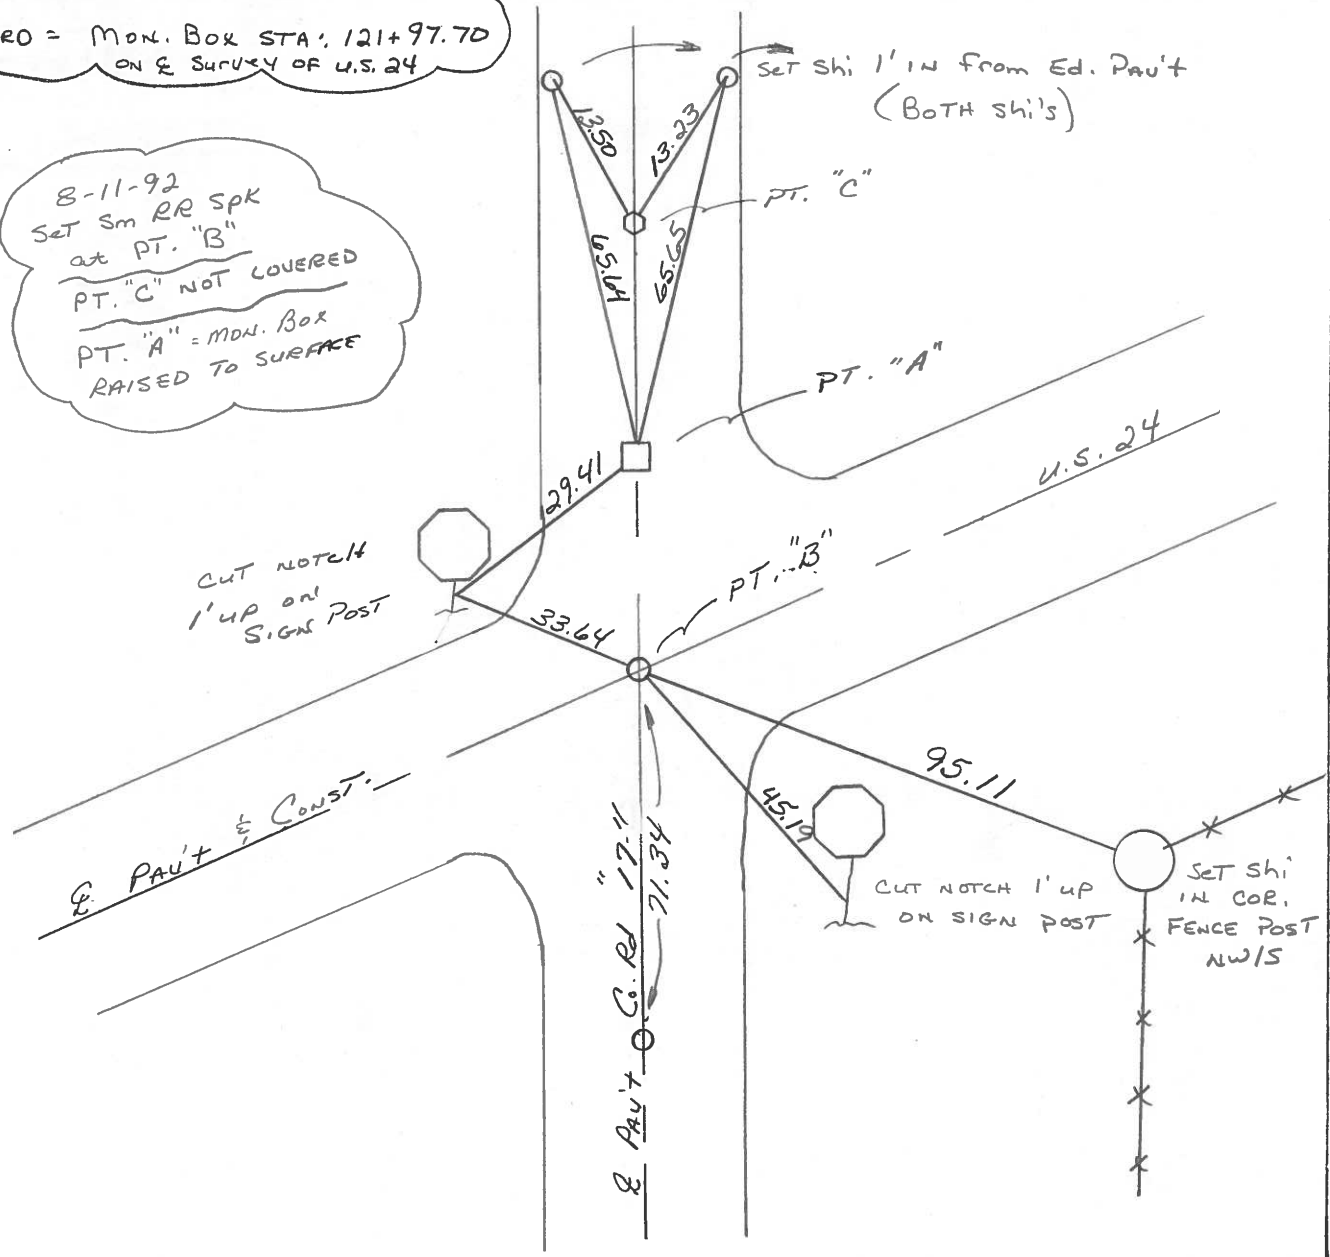 RO = MON. BOX STA: 121+97.70
ON ℄ SURVEY OF U.S. 24
SET Shi 1' IN From Ed. PAV't
(BOTH Shi's)
13.50
13.23
PT. "C"
8-11-92
SET Sm RR SPK
at PT. "B"
PT. "C" NOT COVERED
PT. "A" = MON. BOX
RAISED TO SURFACE
65.64
65.65
PT. "A"
U.S. 24
29.41
CUT NOTCH
1' UP ON
SIGN POST
33.64
PT. "B"
95.11
45.19
℄ PAV't & CONST.
CUT NOTCH 1' UP
ON SIGN POST
SET Shi
IN COR.
FENCE POST
NW/S
71.34
℄ PAV't Co. Rd "17-"